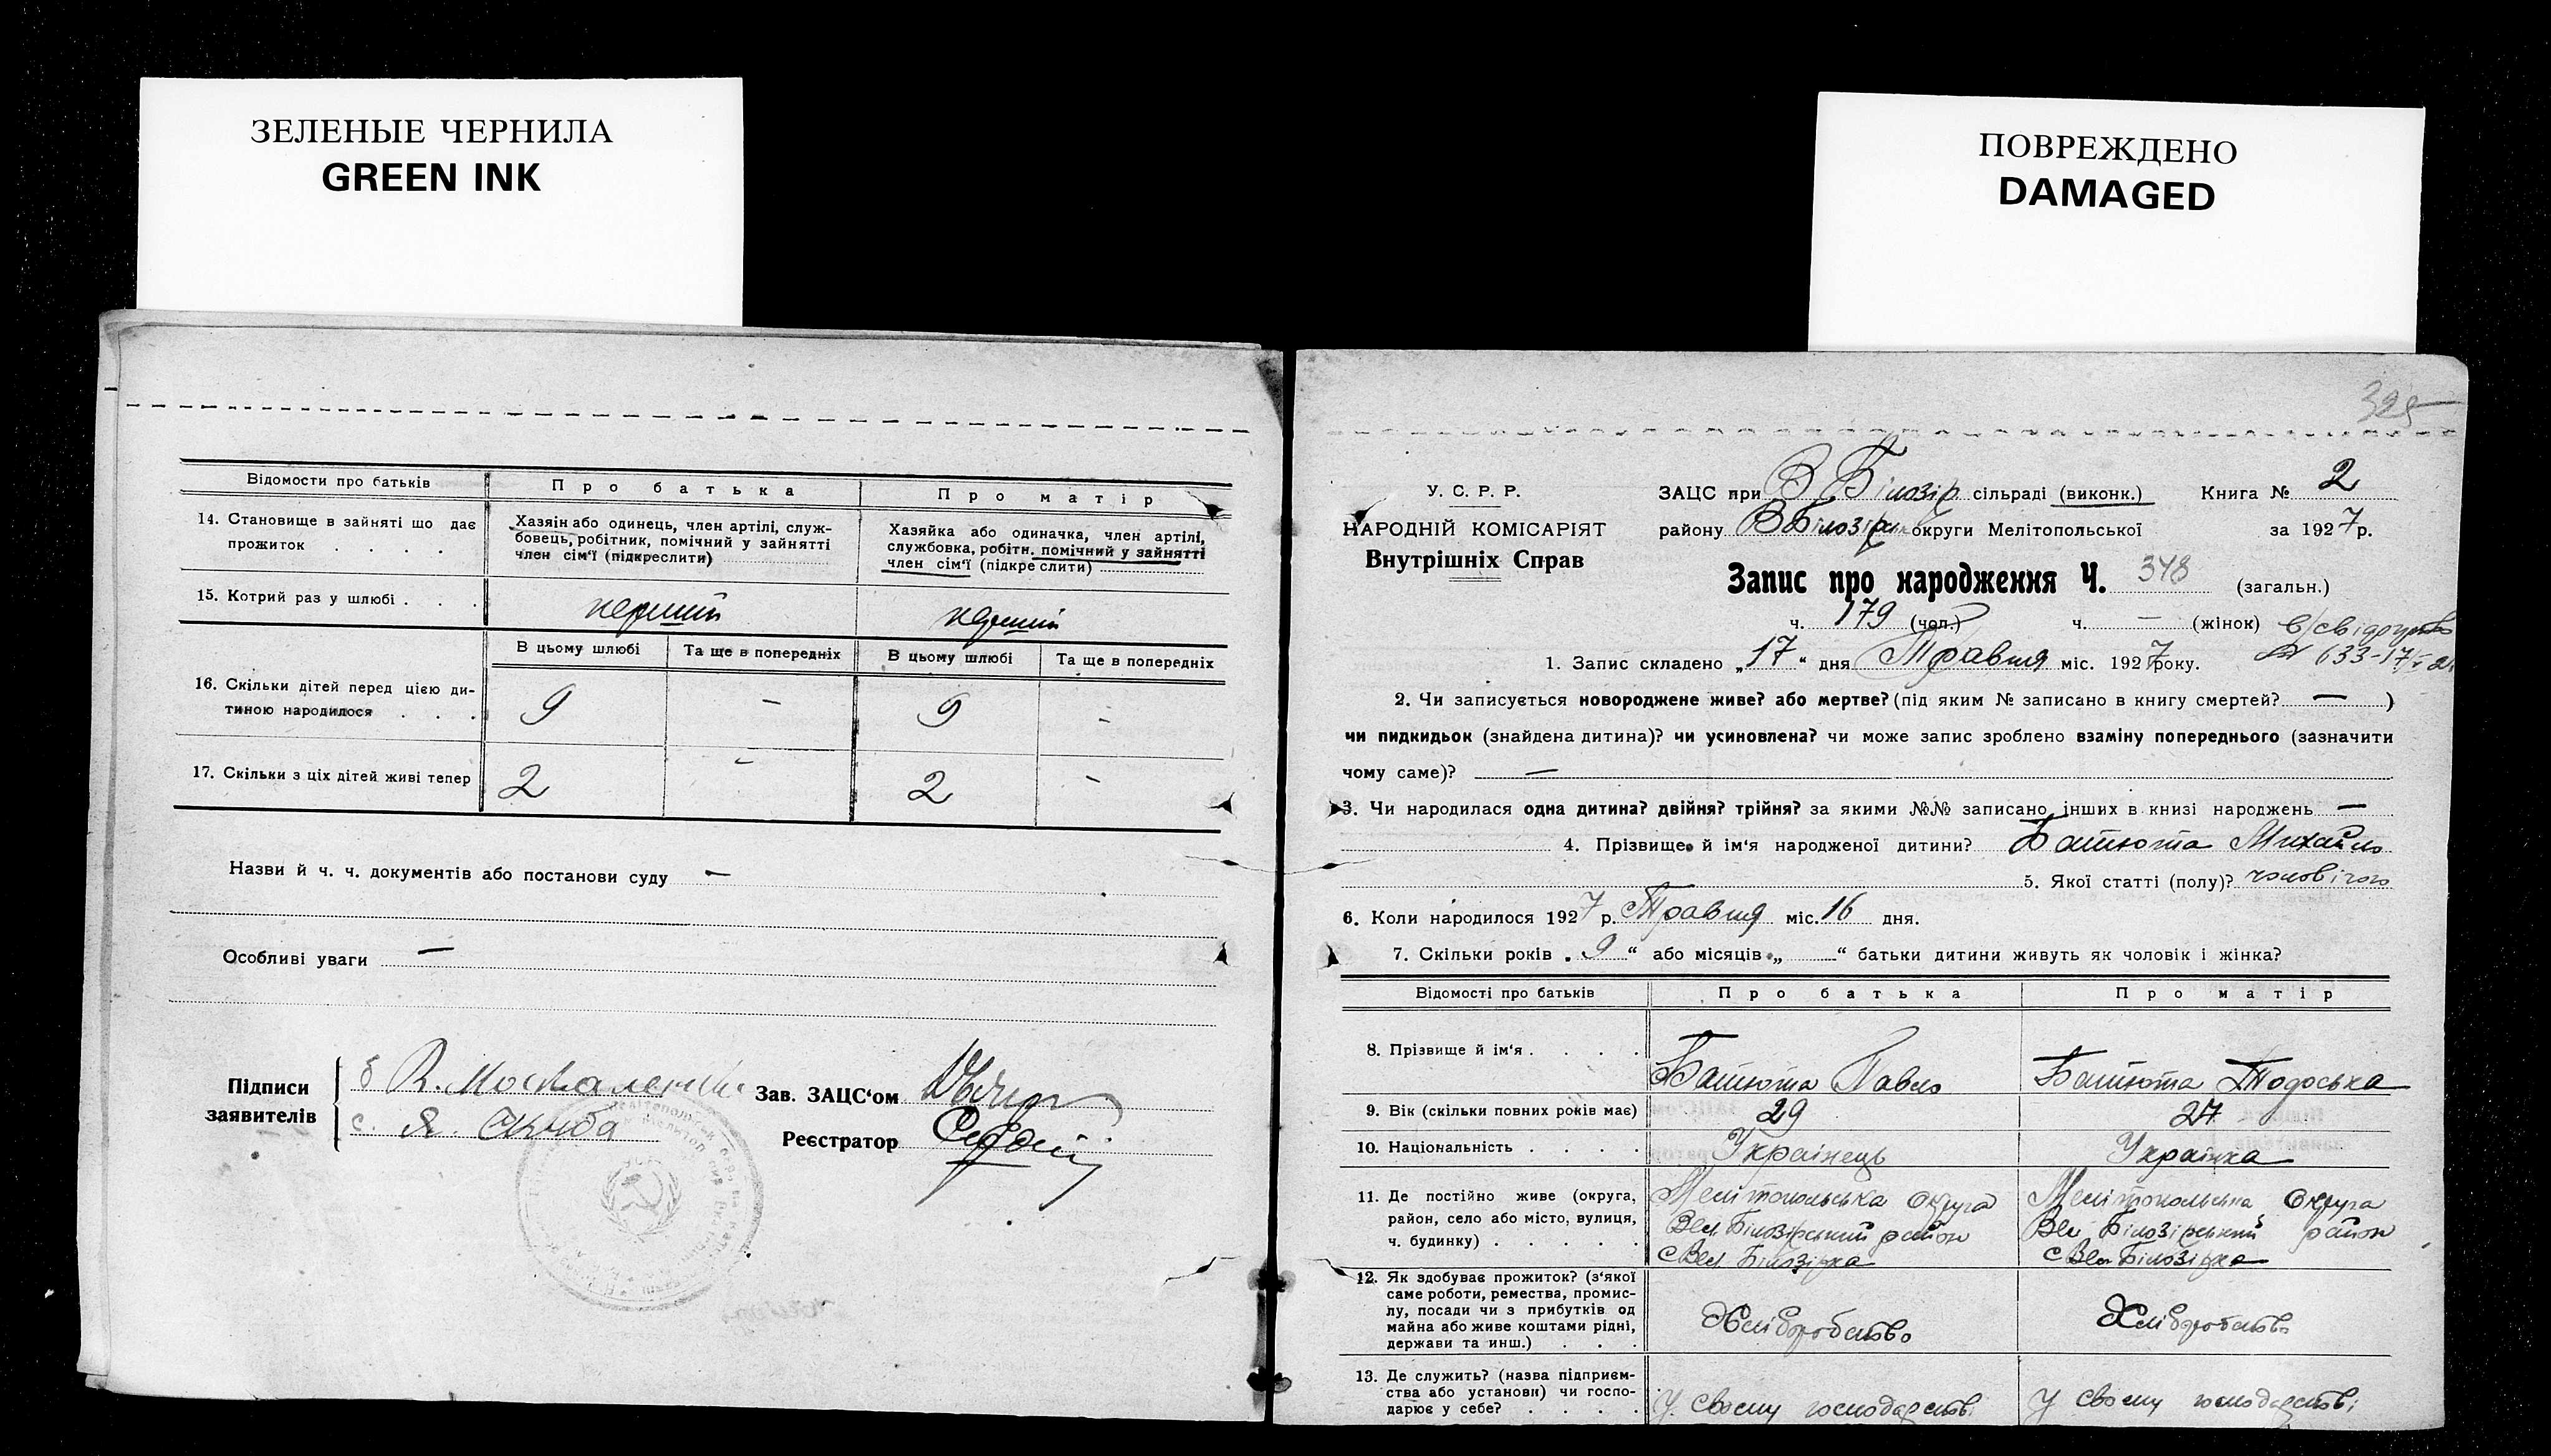 ЗЕЛЕНЫЕ ЧЕРНИЛА
GREEN INK
ПОВРЕЖДЕНО
DAMAGED
Відомости про батьків
Про батька
Про матір
14. Становище в зайняті що дає прожиток . . . .
Хазяін або одинець, член артілі, служ-
бовець, робітник, помічний у зайнятті
член сім'ї (підкреслити)
Хазяйка або одиначка, член артілі,
службовка, робітн. помічний у зайнятті
член сім'ї (підкреслити)
15. Котрий раз у шлюбі . . .
перший
перший
В цьому шлюбі
Та ще в попередніх
В цьому шлюбі
Та ще в попередніх
16. Скільки дітей перед цією ди-
тиною народилося . . .
9 - 9 -
17. Скільки з ціх дітей живі тепер
2 - 2 -
Назви й ч. ч. документів або постанови суду —
Особливі уваги —
Підписи
заявителів
Москаленко
с. Я. Скиба
Зав. ЗАЦС'ом
Реєстратор
325
У. С. Р. Р.
НАРОДНІЙ КОМІСАРІЯТ
Внутрішніх Справ
ЗАЦС при В Білозір сільраді (виконк.) Книга № 2
району В Білозірк округи Мелітопольської за 1927 р.
Запис про народження Ч. 348 (загальн.)
ч. 179 (чол.) ч. — (жінок)
1. Запис складено „17“ дня Травня міс. 1927 року.
633-17
2. Чи записується новороджене живе? або мертве? (під яким № записано в книгу смертей? — )
чи пидкидьок (знайдена дитина)? чи усиновлена? чи може запис зроблено взаміну попереднього (зазначити
чому саме)? —
3. Чи народилася одна дитина? двійня? трійня? за якими №№ записано інших в книзі народжень —
4. Прізвище й ім'я народженої дитини? Батюта Михайло
5. Якої статті (полу)? чоловічого
6. Коли народилося 1927 р. Травня міс. 16 дня.
7. Скільки років „9“ або місяців „ “ батьки дитини живуть як чоловік і жінка?
Відомості про батьків
Про батька
Про матір
8. Прізвище й ім'я . . . .
Батюта Павло
Батюта Тодоська
9. Вік (скільки повних років має)
29
27
10. Національність . . . .
Українець
Українка
11. Де постійно живе (округа,
район, село або місто, вулиця,
ч. будинку) . . . . .
Мелітопольська округа
Вел. Білозірський район
с Вел. Білозірка
Мелітопольська округа
Вел Білозірський район
с Вел Білозірка
12. Як здобуває прожиток? (з'якої
саме роботи, ремества, промис-
лу, посади чи з прибутків од
майна або живе коштами рідні,
держави та инш.) . . .
Хліборобство
Хліборобство
13. Де служить? (назва підприєм-
ства або установи) чи госпо-
дарює у себе? . . . .
У своєму господарстві
У своєму господарстві